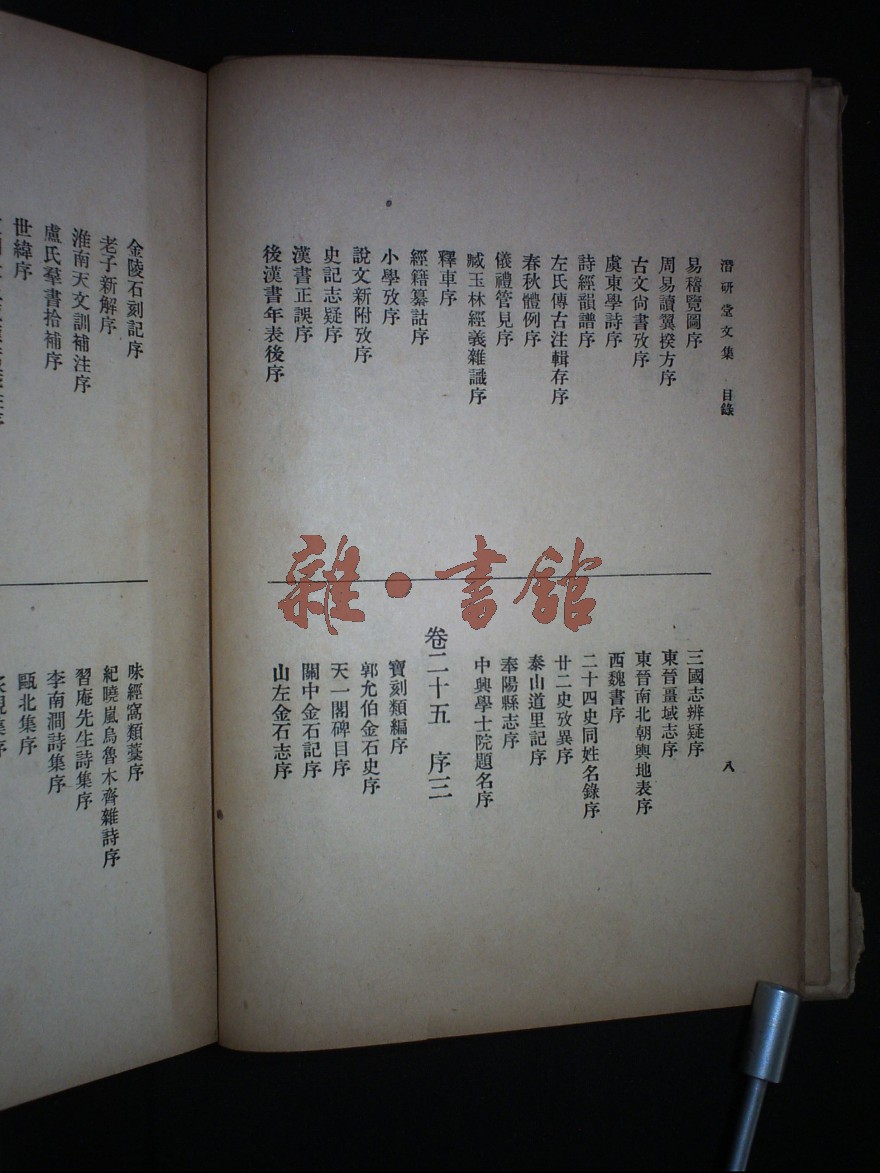 潛研堂文集 目錄
八
易稽覽圖序
周易讀翼揆方序
古文尙書攷序
虞東學詩序
詩經韻譜序
左氏傳古注輯存序
春秋體例序
儀禮管見序
臧玉林經義雜識序
釋車序
經籍纂詁序
小學攷序
說文新附攷序
史記志疑序
漢書正誤序
後漢書年表後序
三國志辨疑序
東晉畺域志序
東晉南北朝輿地表序
西魏書序
二十四史同姓名錄序
廿二史攷異序
泰山道里記序
奉陽縣志序
中興學士院題名序
卷二十五 序三
寶刻類編序
郭允伯金石史序
天一閣碑目序
關中金石記序
山左金石志序
金陵石刻記序
老子新解序
淮南天文訓補注序
盧氏羣書拾補序
世緯序
味經窩類藁序
紀曉嵐烏魯木齊雜詩序
習庵先生詩集序
李南澗詩集序
甌北集序
雜·書館